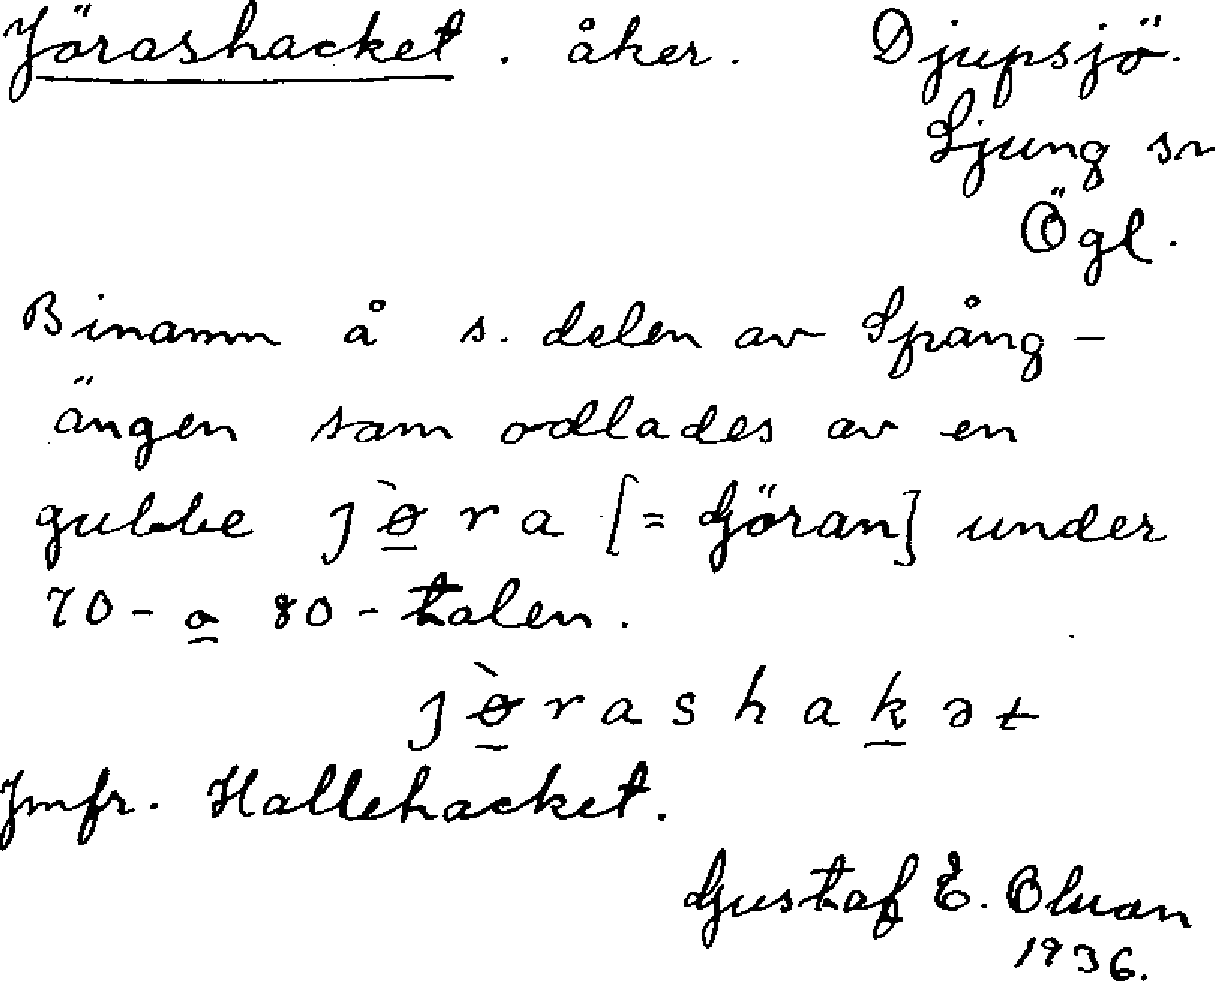 Jörashacket. åker. Djupsjö.
Ljung sn
Ögl.
Binamn å s. delen av Spång-
ängen som odlades av en
gubbe jɵ̀ra [= Göran] under
70- o 80-talen.
jɵ̀rashakət
Jmfr. Hallehacket.
Gustaf E.
1936.